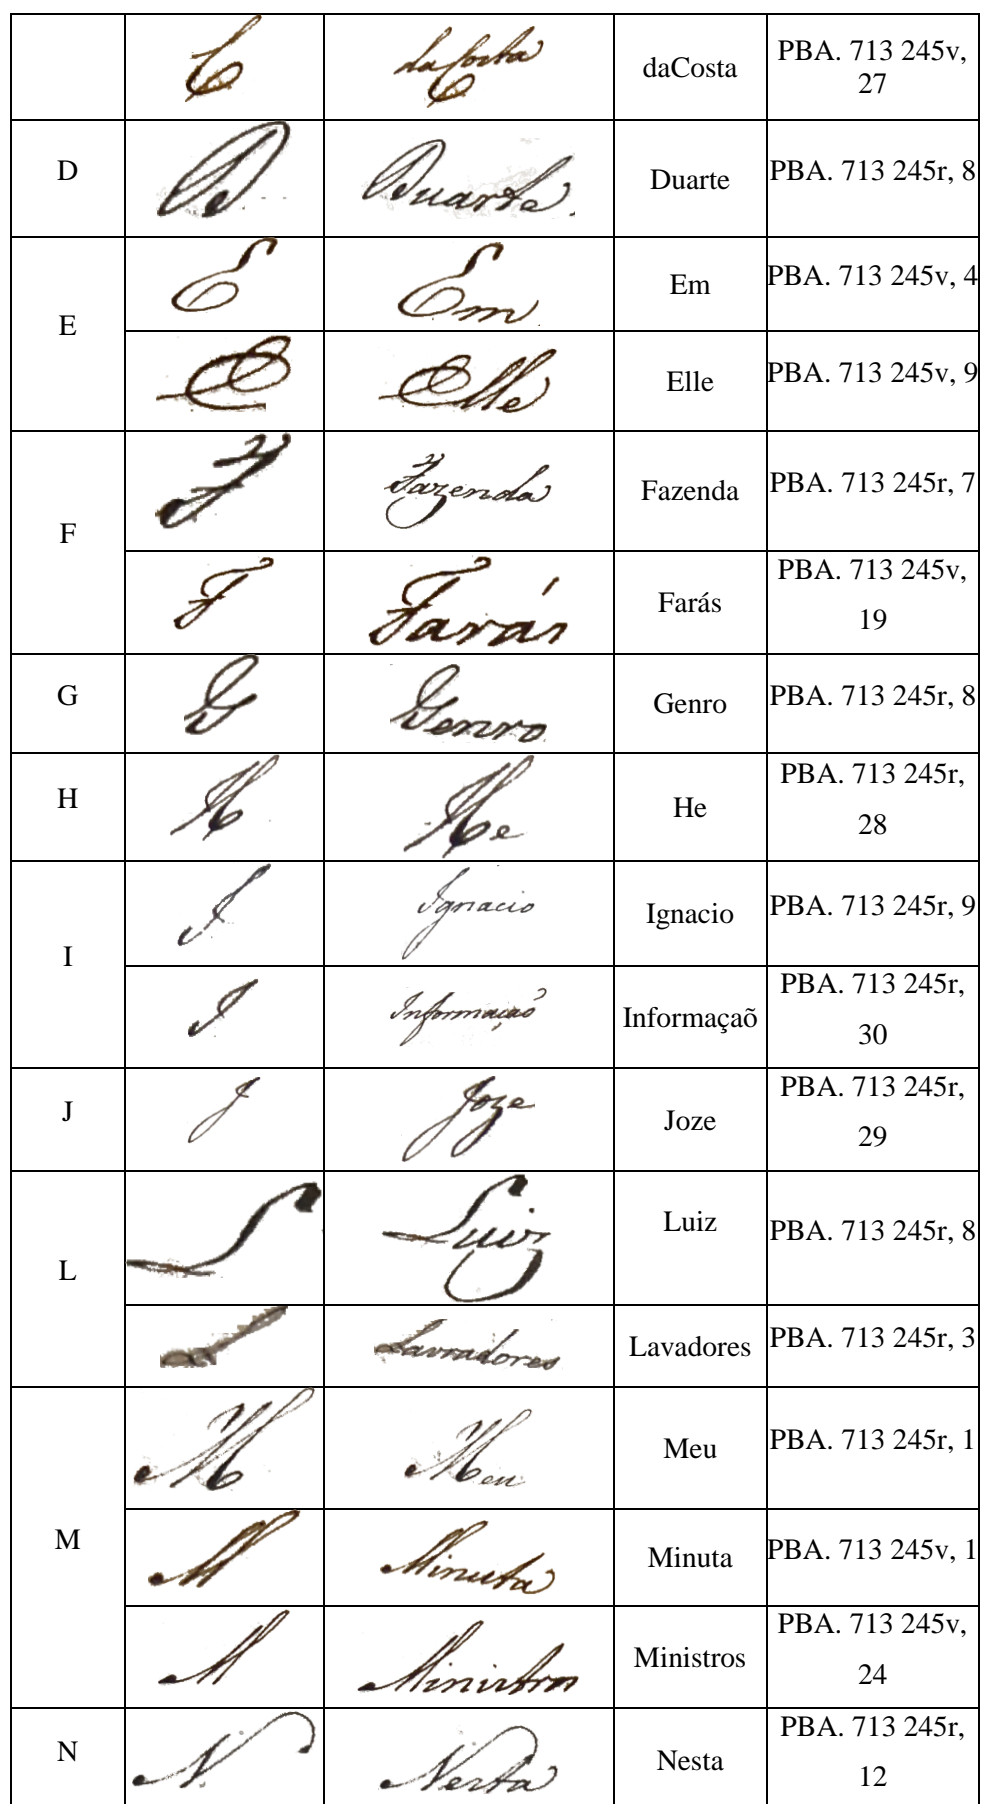 C daCosta daCosta PBA. 713 245v,
27
D D. Duarte. Duarte PBA. 713 245r, 8
E E Em Em PBA. 713 245v, 4
E Elle Elle PBA. 713 245v, 9
F F Fazenda Fazenda PBA. 713 245r, 7
F Farás Farás PBA. 713 245v,
19
G G Genro Genro PBA. 713 245r, 8
H H He He PBA. 713 245r,
28
I I Ignacio Ignacio PBA. 713 245r, 9
I Informaçaõ Informaçaõ PBA. 713 245r,
30
J J Joze Joze PBA. 713 245r,
29
L L Luiz Luiz PBA. 713 245r, 8
L Lavradores Lavadores PBA. 713 245r, 3
M M Meu Meu PBA. 713 245r, 1
M Minuta Minuta PBA. 713 245v, 1
M Ministros Ministros PBA. 713 245v,
24
N N. Nesta Nesta PBA. 713 245r,
12